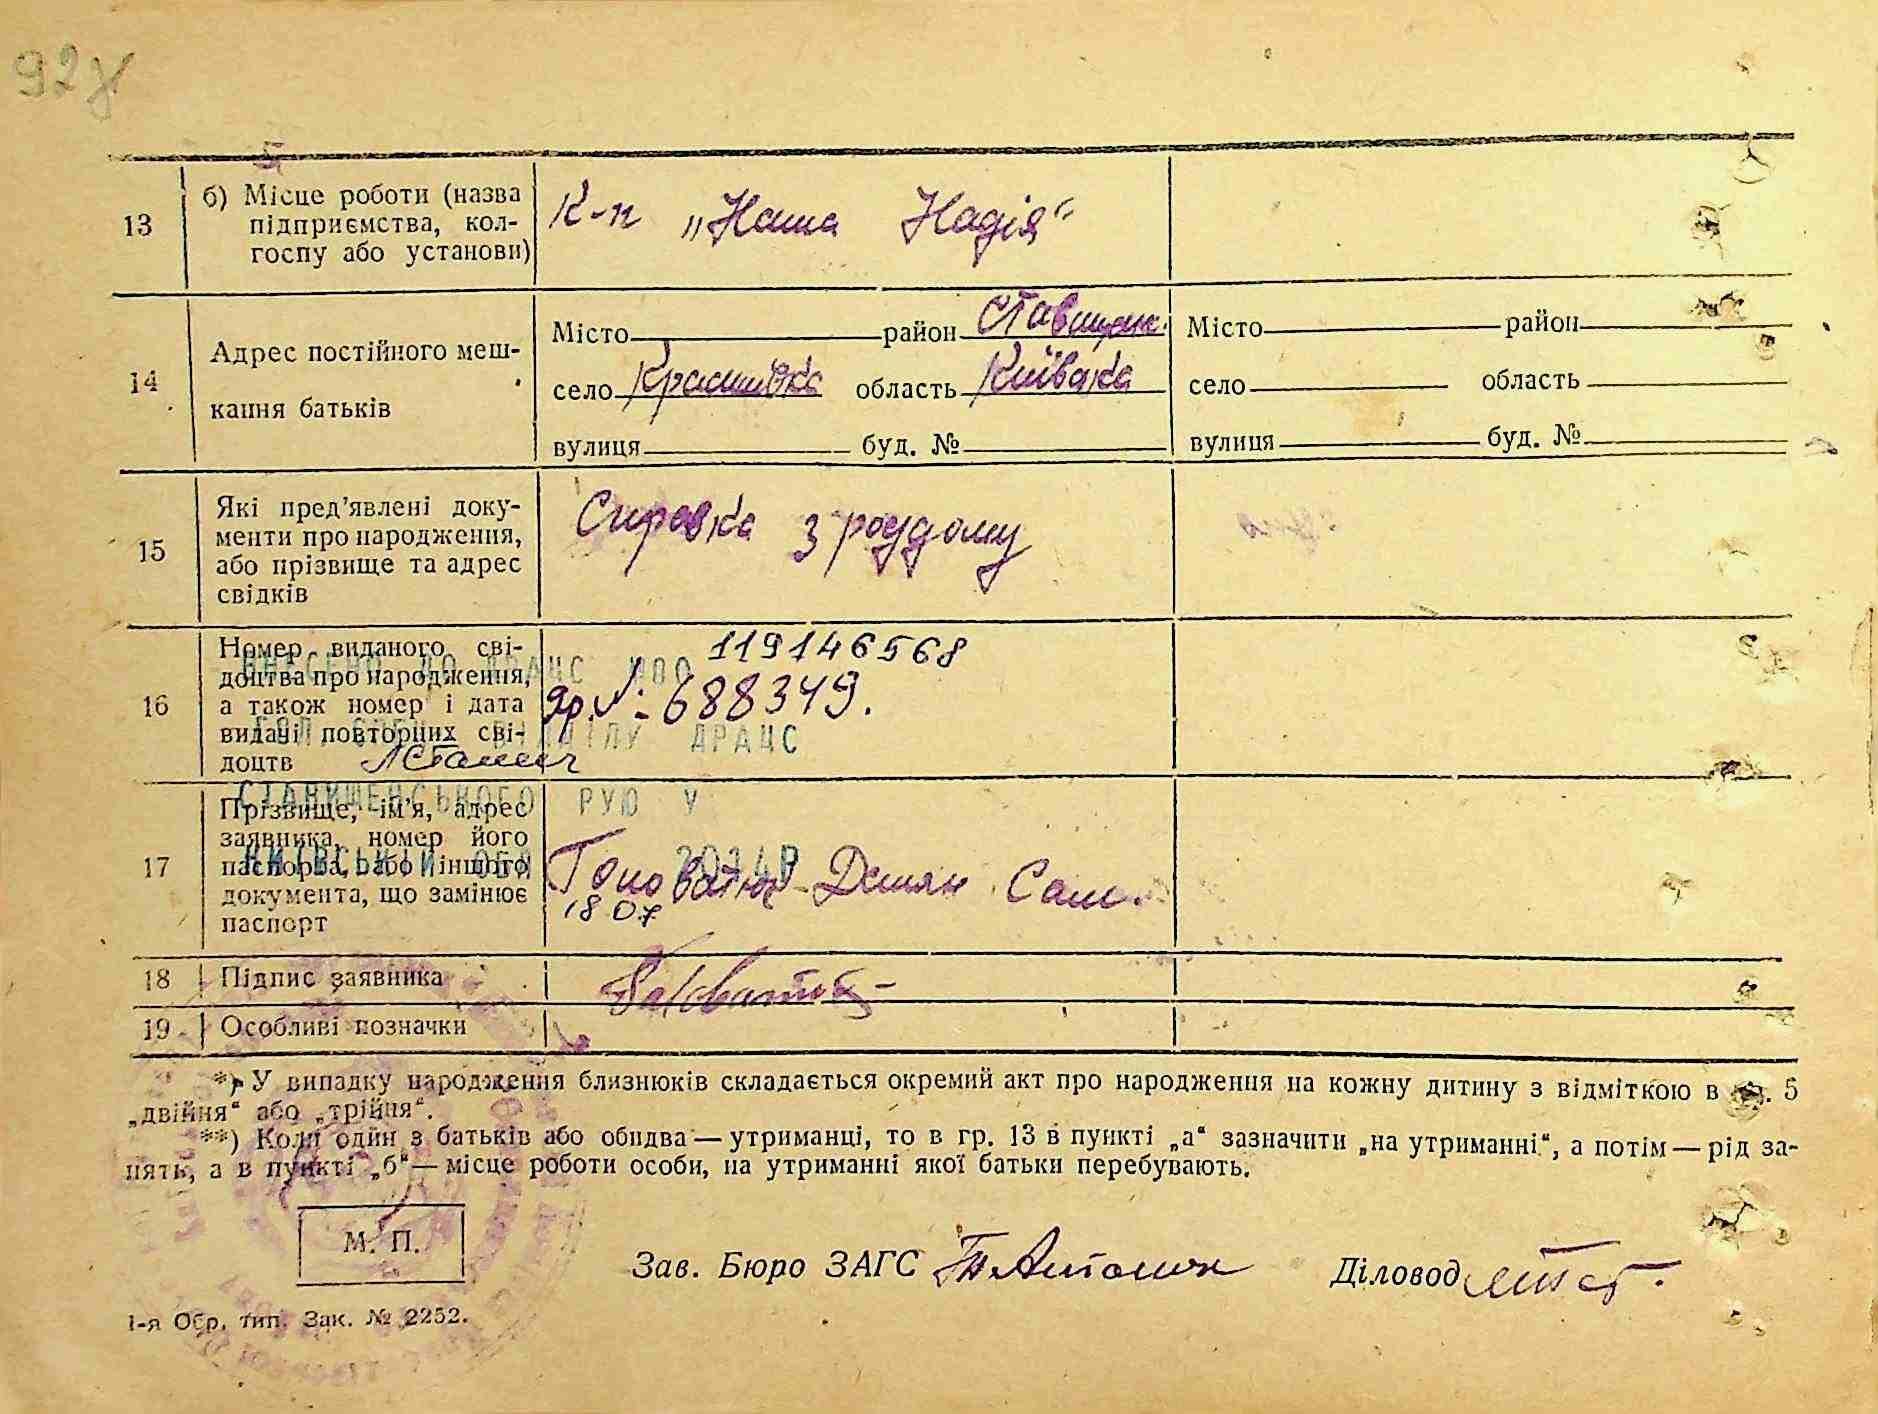 13 б) Місце роботи (назва
підприємства, кол-
госпу або установи)
к-п „Наша Надія“
14 Адрес постійного меш-
кання батьків
Місто район Ставищан.
село Красилівка область Київська
вулиця буд. №
Місто район
село область
вулиця буд. №
15 Які пред’явлені доку-
менти про народження,
або прізвище та адрес
свідків
Справка з роддому
16 Номер виданого сві-
доцтва про народження,
а також номер і дата
видачі повторних сві-
доцтв
119146568
яр. №: 688349.
ВНЕСЕНО ДО ДРАЦС
ВІДДІЛУ ДРАЦС
СТАВИЩЕНСЬКОГО РУЮ У
КИЇВСЬКІЙ ОБЛ 2014Р
18 07
17 Прізвище, ім’я, адрес
заявника, номер його
паспорта, або іншого
документа, що замінює
паспорт
Демян Сам.
18 Підпис заявника
19 Особливі позначки
*) У випадку народження близнюків складається окремий акт про народження на кожну дитину з відміткою в гр. 5
„двійня“ або „трійня“.
**) Коли один з батьків або обидва — утриманці, то в гр. 13 в пункті „а“ зазначити „на утриманні“, а потім — рід за-
нять, а в пункті „б“ — місце роботи особи, на утриманні якої батьки перебувають.
М. П.
Зав. Бюро ЗАГС
Діловод
1-я Обр. тип. Зак. № 2252.